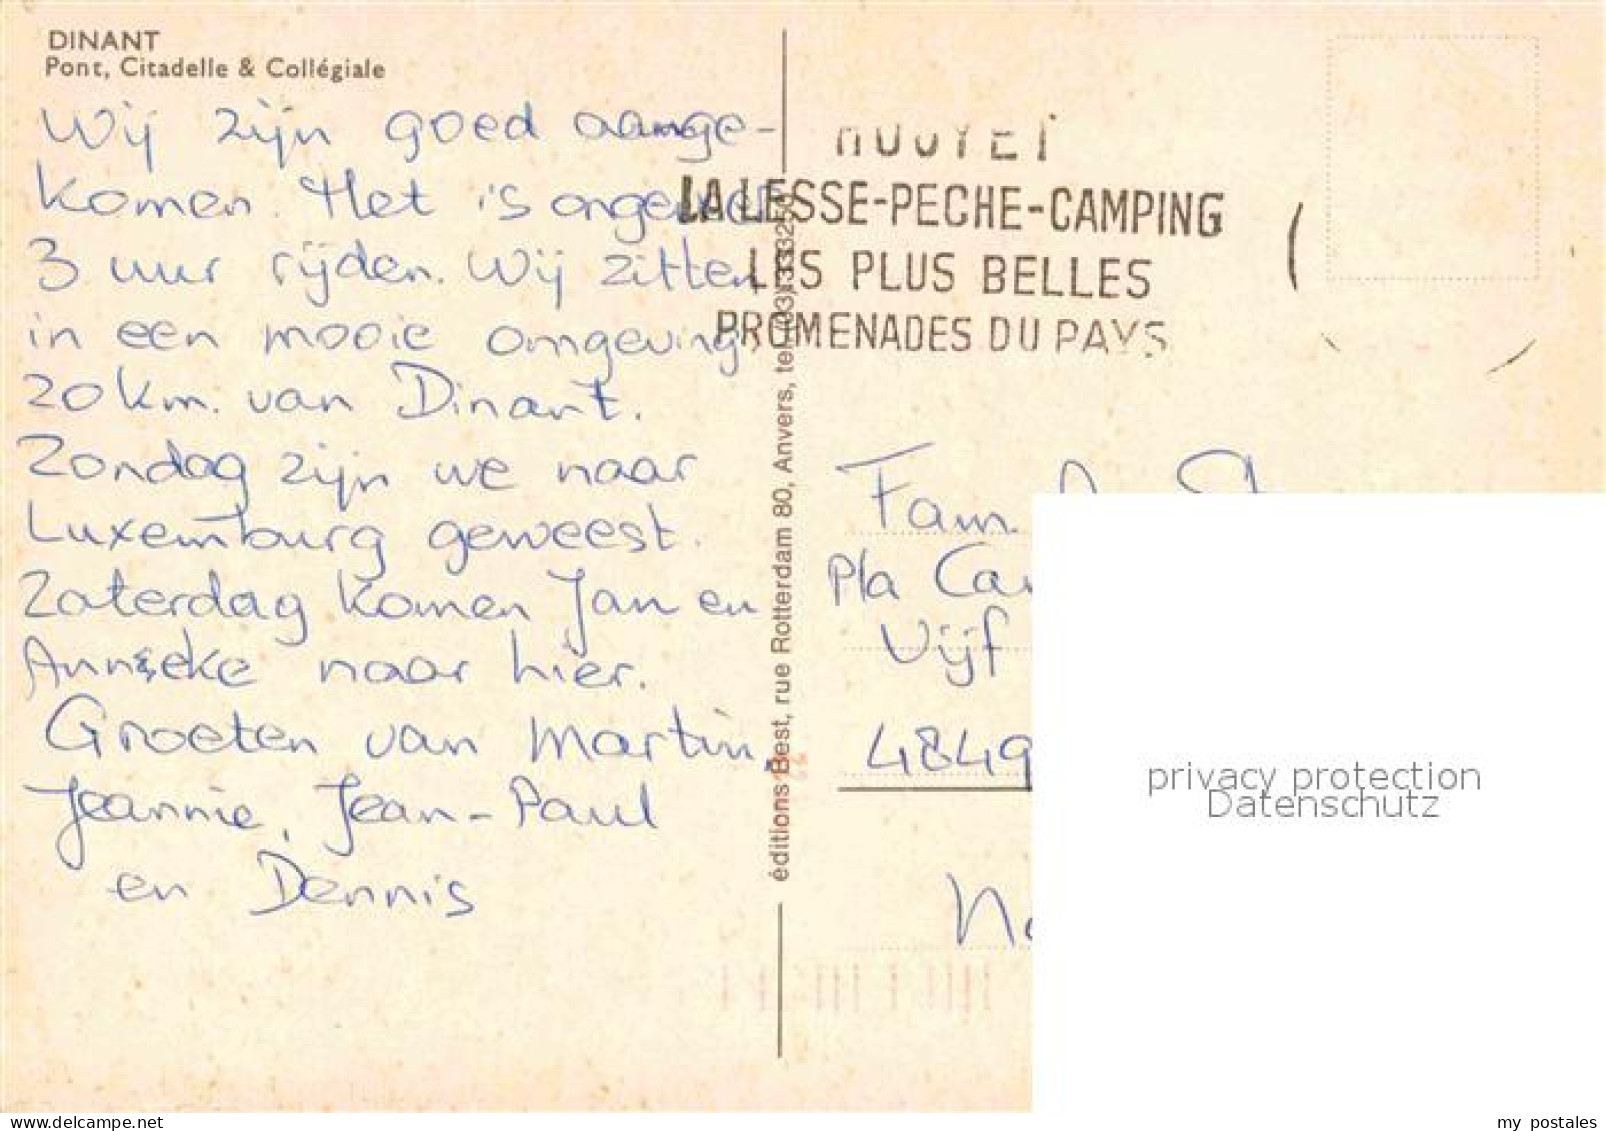 DINANT
Pont, Citadelle & Collégiale
Wij zijn goed aange-
komen. Het is ongeveer
3 uur rijden. Wij zitten
in een mooie omgeving,
20 km. van Dinant.
Zondag zijn we naar
Luxemburg geweest.
Zaterdag komen Jan en
Anneke naar hier.
Groeten van Martin,
Jeannie, Jean-Paul
en Dennis
éditions Best, rue Rotterdam 80, Anvers, tel.
HOUYET
LA LESSE-PECHE-CAMPING
LES PLUS BELLES
PROMENADES DU PAYS
Fam.
Pla
Vijf
4849
privacy protection
Datenschutz
my postales
www.delcampe.net